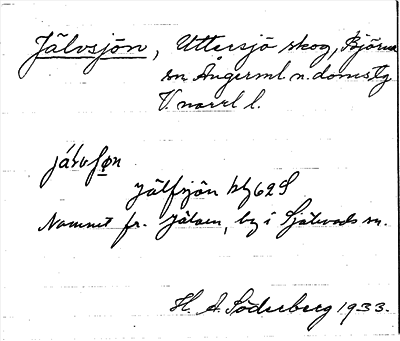 Jälvsjön, Uttersjö skog, Björna
sn Ångerml. n. doms.tg
V. norrl l.
jálvſøn
Jälfsjön kbl 62 S
Namnet fr. Jälaen, by i Själevads sn.
H. A. Söderberg 1933.